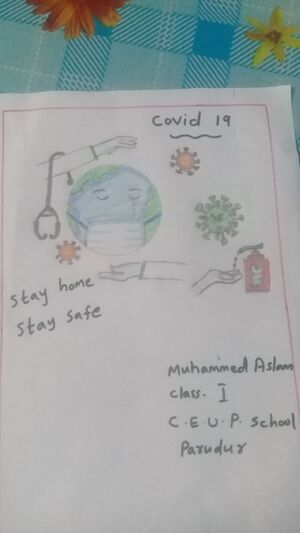 Covid 19
stay home
stay safe
Muhammed Aslam
class. I
C.E.U.P. School
Parudur